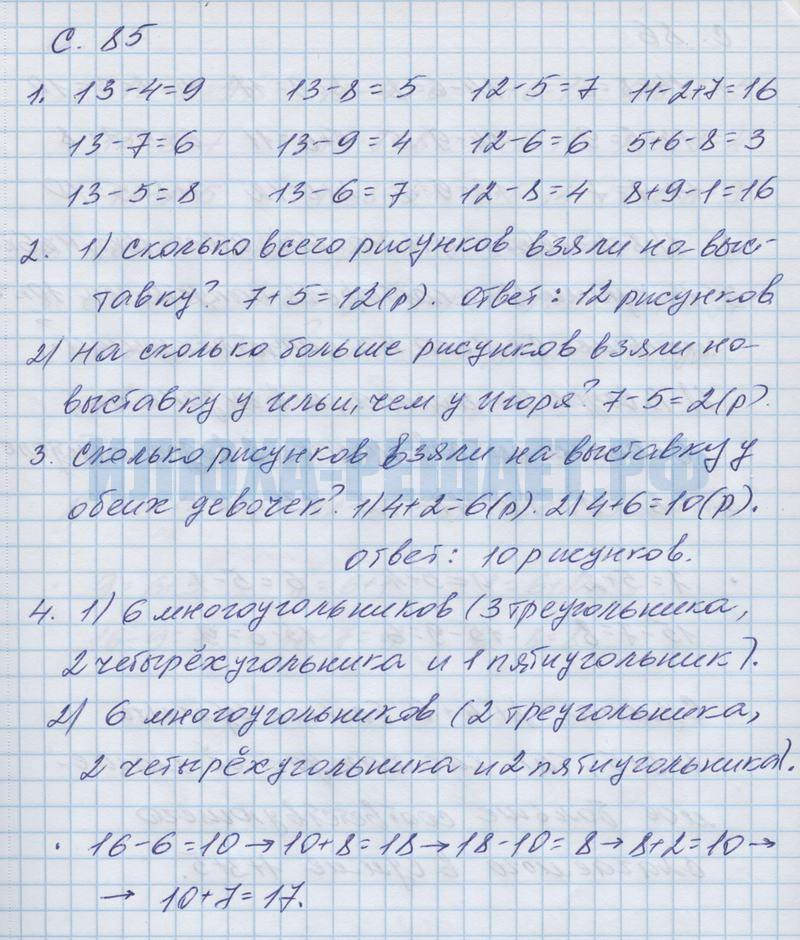 С. 85
1. 13-4=9 13-8=5 12-5=7 11-2+7=16
13-7=6 13-9=4 12-6=6 5+6-8=3
13-5=8 13-6=7 12-8=4 8+9-1=16
2. 1) Сколько всего рисунков взяли на выс-
тавку? 7+5=12(р). Ответ: 12 рисунков
2) На сколько больше рисунков взяли на
выставку у Ильи, чем у Игоря? 7-5=2(р).
3. Сколько рисунков взяли на выставку у
ИЛЮХА-РЕШАЕТ.РФ
обеих девочек? 1) 4+2=6(р). 2) 4+6=10(р).
Ответ: 10 рисунков.
4. 1) 6 многоугольников (3 треугольника,
2 четырёхугольника и 1 пятиугольник).
2) 6 многоугольников (2 треугольника,
2 четырёхугольника и 2 пятиугольника).
· 16-6=10→10+8=18→18-10=8→8+2=10→
→ 10+7=17.